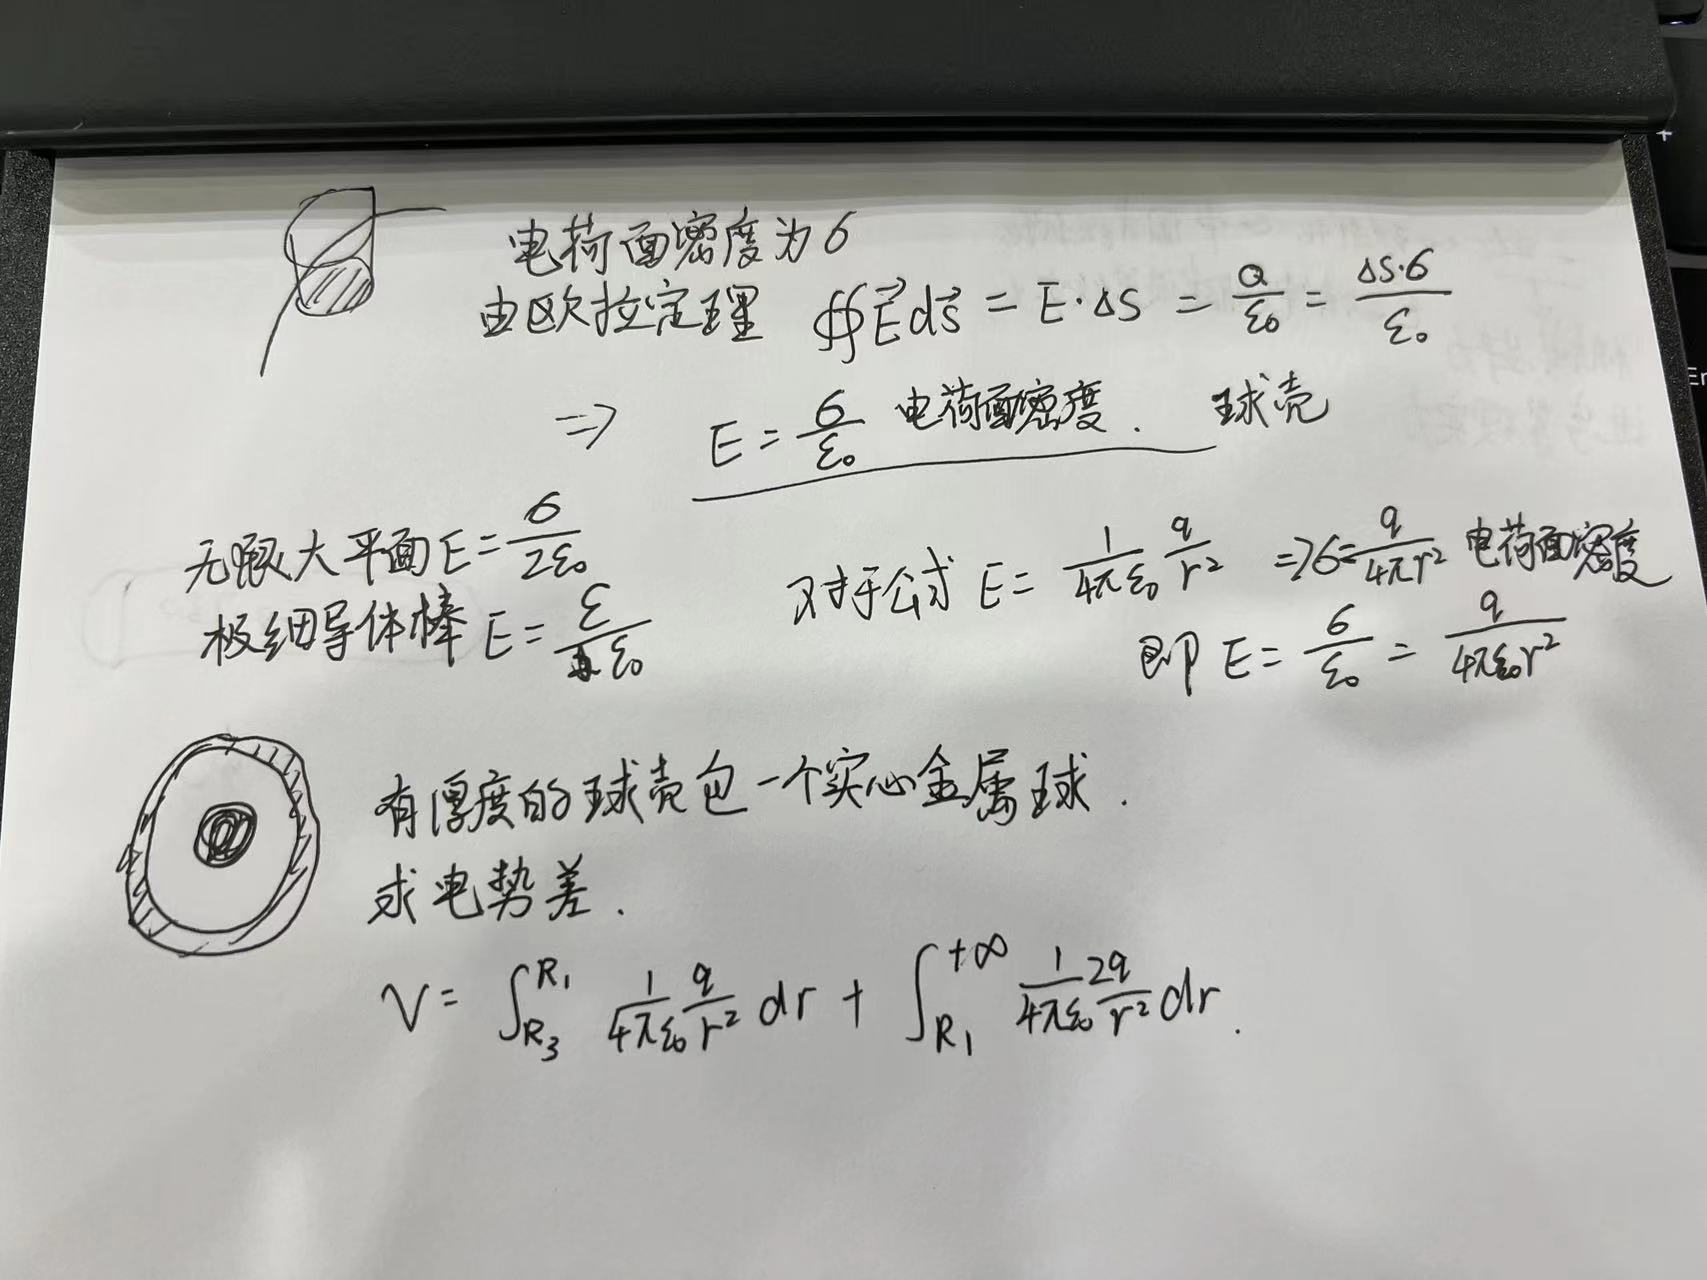 电荷面密度为σ
由欧拉定理 ∯E⃗ds⃗ = E·ΔS = Q/ε₀ = ΔS·σ/ε₀
⇒ E = σ/ε₀ 电荷面密度. 球壳
无限大平面E = σ/2ε₀
极细导体棒 E =
对于公式 E = 1/4πε₀ q/r² ⇒ σ = q/4πr² 电荷面密度
即 E = σ/ε₀ = q/4πε₀r²
有厚度的球壳包一个实心金属球.
求电势差.
V = ∫_{R₃}^{R₁} 1/4πε₀ q/r² dr + ∫_{R₁}^{+∞} 1/4πε₀ 2q/r² dr.